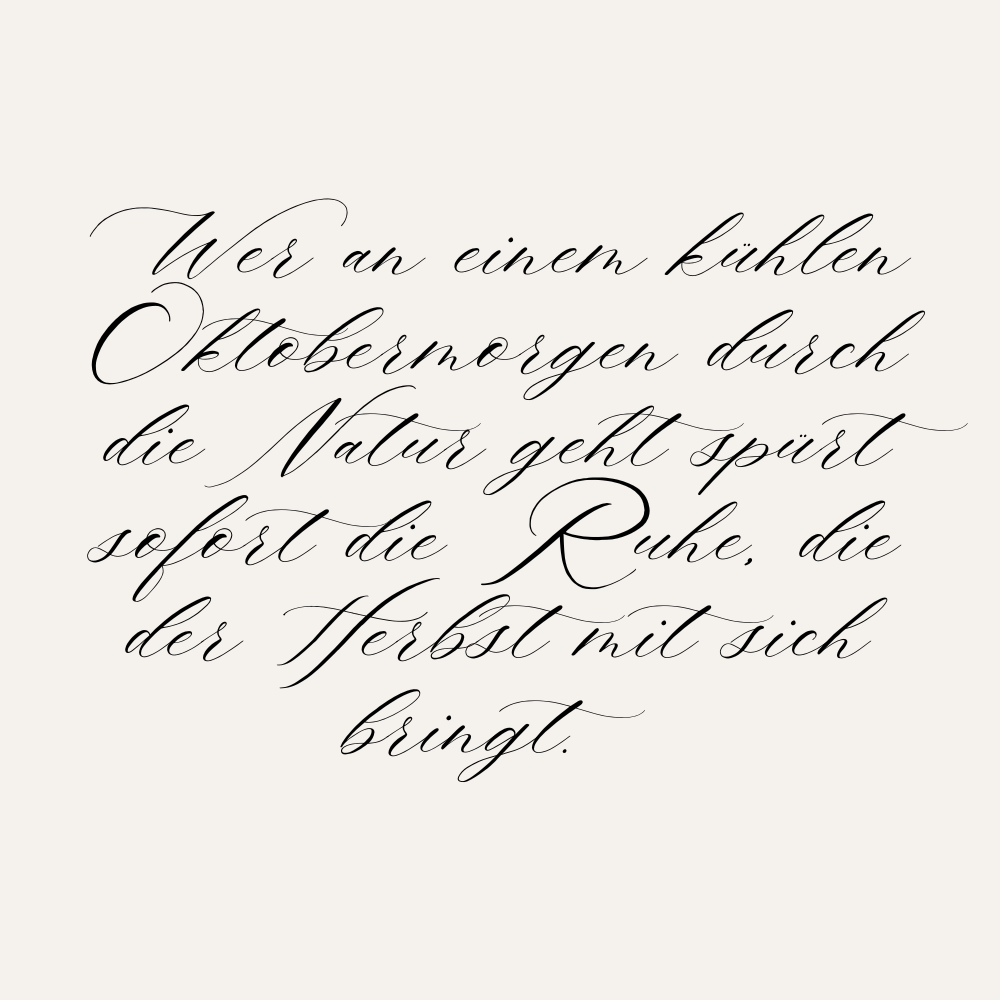 Wer an einem kühlen
Oktobermorgen durch
die Natur geht spürt
sofort die Ruhe, die
der Herbst mit sich
bringt.